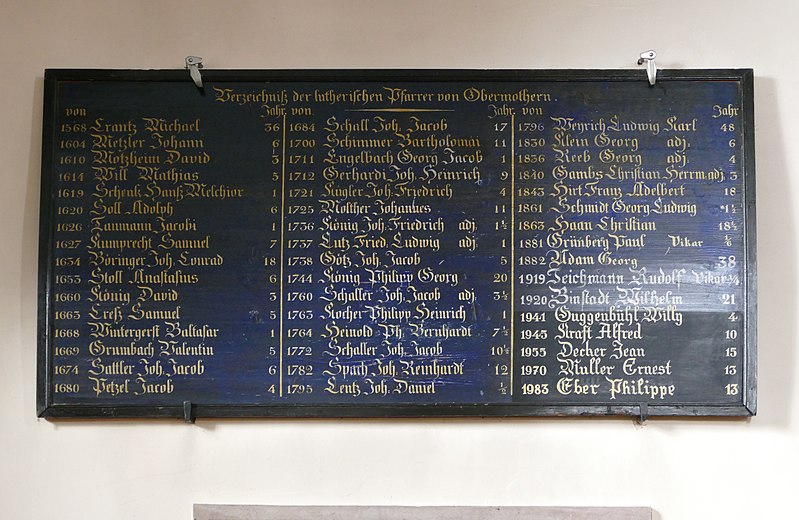 Verzeichniß der lutherischen Pfarrer von Obermothern.
von Jahr
1568 Crantz Michael 36
1604 Metzler Johann 6
1610 Motzheim David 3
1614 Will Mathias 5
1619 Schenk Hanß Melchior 1
1620 Soll Adolph 6
1626 Naumann Jacobi 1
1627 Kumprecht Samuel 7
1634 Böringer Joh. Conrad 18
1653 Stoll Anastasius 6
1660 König David 3
1663 Creß Samuel 5
1668 Wintergerst Baltasar 1
1669 Grumbach Valentin 5
1674 Sattler Joh. Jacob 6
1680 Petzel Jacob 4
von Jahr
1684 Schall Joh. Jacob 17
1700 Schimmer Bartholomäi 11
1711 Engelbach Georg Jacob 1
1712 Gerhardi Joh. Heinrich 9
1721 Kugler Joh. Friedrich 4
1725 Molther Johannes 11
1736 König Joh. Friedrich adj. 1½
1737 Lutz Fried. Ludwig adj. 1
1738 Götz Joh. Jacob 5
1744 König Philipp Georg 20
1760 Schaller Joh. Jacob adj. 3½
1763 Kocher Philipp Heinrich 1
1764 Heinold Ph. Bernhardt 7½
1772 Schaller Joh. Jacob 10½
1782 Spach Joh. Reinhardt 12
1795 Lentz Joh. Daniel ½
von Jahr
1796 Weyrich Ludwig Karl 48
1830 Klein Georg adj. 6
1836 Reeb Georg adj. 4
1840 Gambs Christian Herrm. adj. 3
1843 Hirt Franz Adelbert 18
1861 Schmidt Georg Ludwig 1½
1863 Haan Christian 18½
1881 Grünberg Paul Vikar ⅙
1882 Adam Georg 38
1919 Teichmann Rudolf Vikar ¾
1920 Binstadt Wilhelm 21
1941 Guggenbühl Willy 4
1945 Kraft Alfred 10
1955 Decker Jean 15
1970 Muller Ernest 13
1983 Eber Philippe 13